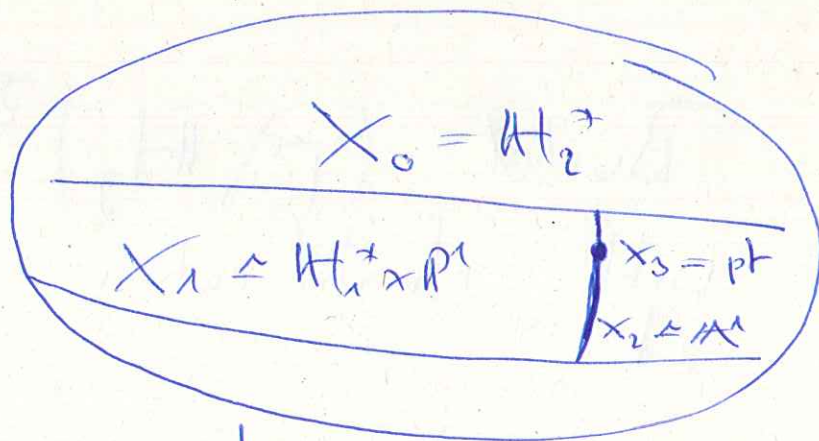 X₀ = ℍ₂*
X₁ ≃ ℍ₁* × P¹
X₃ = pt
X₂ ≃ A¹